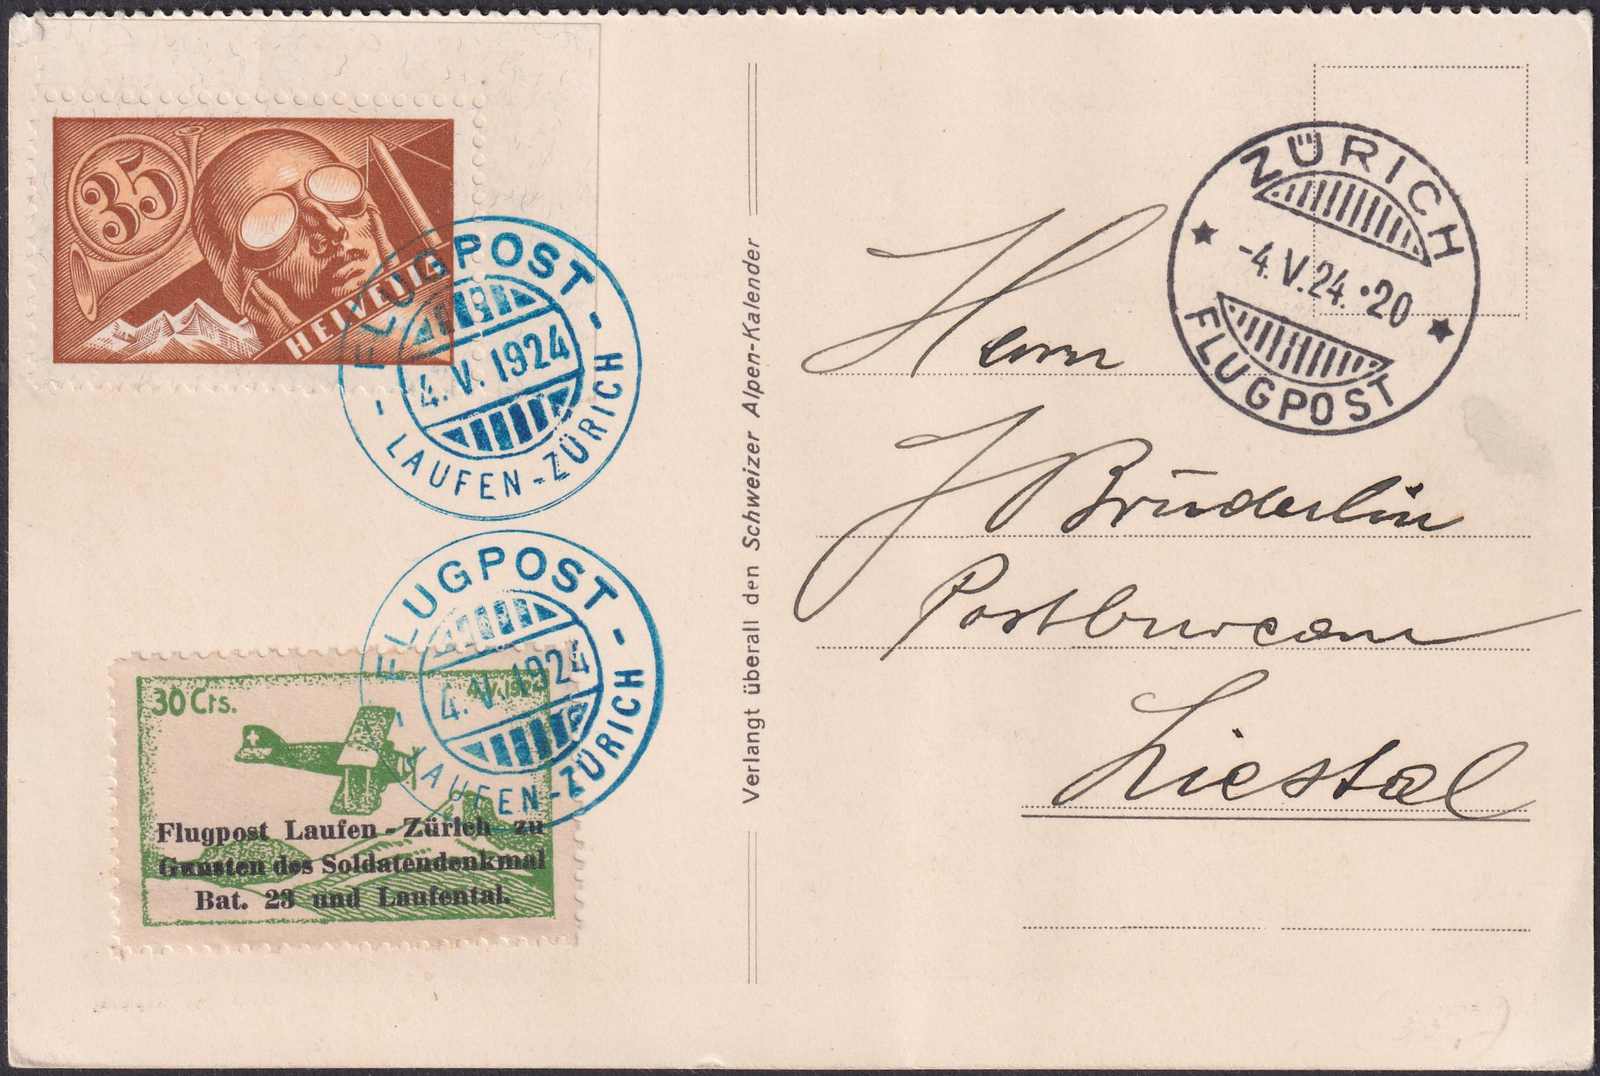 35
HELVETIA
FLUGPOST
4.V.1924
LAUFEN-ZÜRICH
FLUGPOST
4.V.1924
LAUFEN-ZÜRICH
30 Cts.
4.V.1924
Flugpost Laufen-Zürich zu
Gunsten des Soldatendenkmal
Bat. 23 und Laufental.
Verlangt überall den Schweizer Alpen-Kalender
ZÜRICH
-4.V.24.•20
FLUGPOST
Herrn
J Brüderlin
Postbureau
Liestal